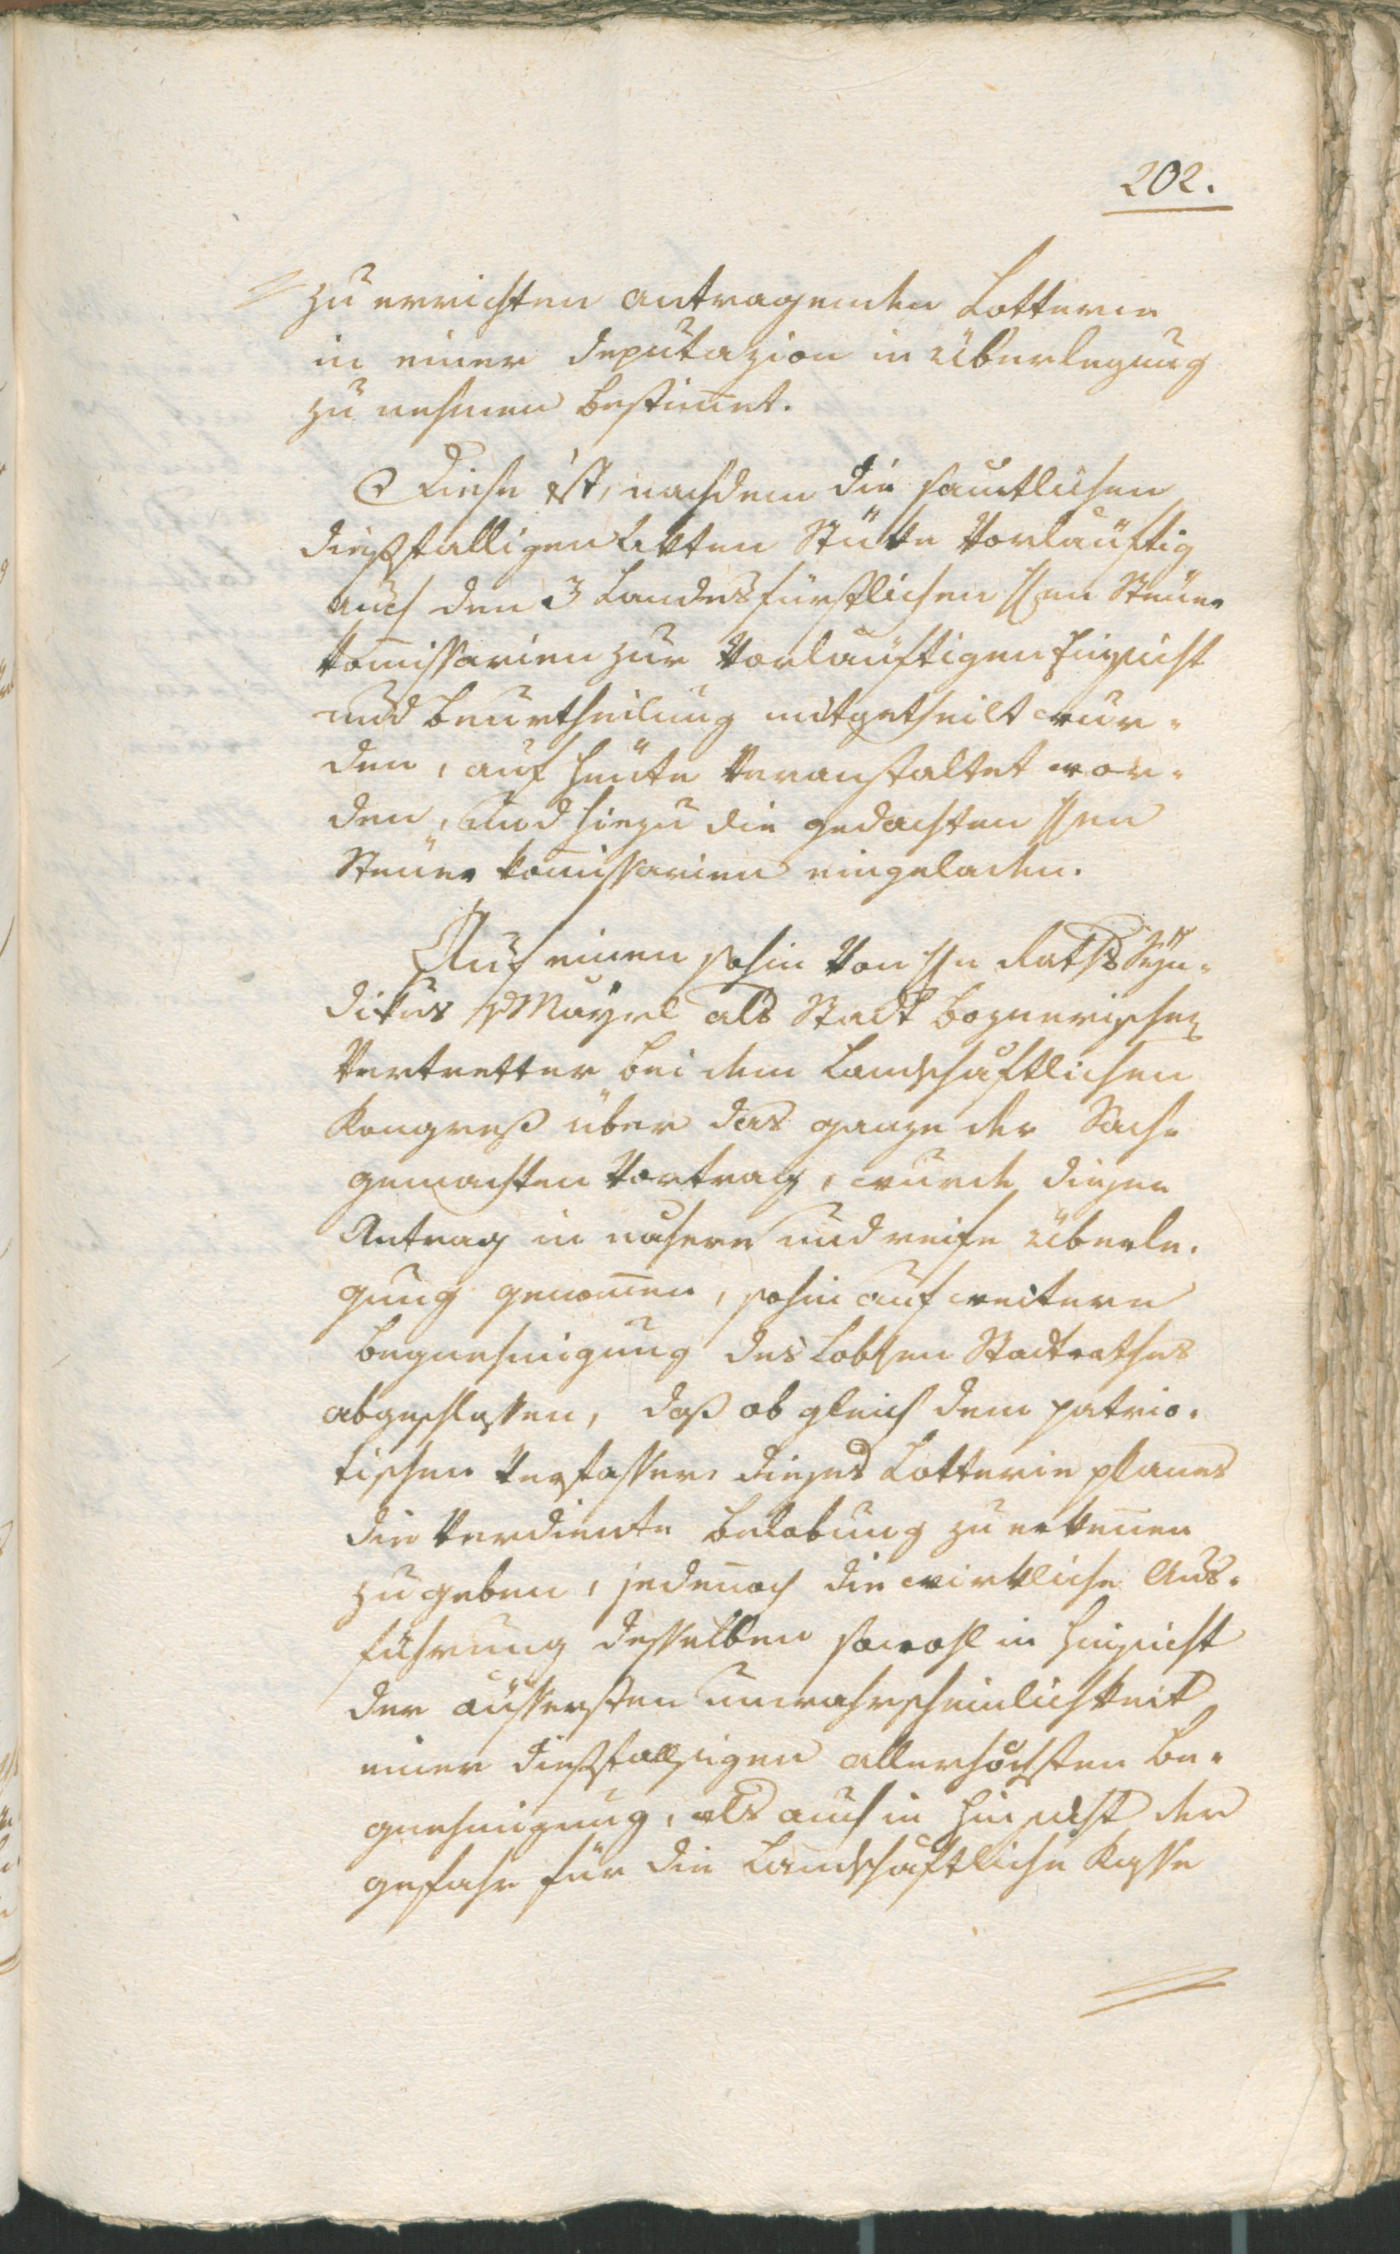 202.
zu errichten antragenden Lotterie
in einer Deputazion in Überlegung
zu nehmen bestim̅et.
Diese ist, nachdem die sam̅tlichen
dießfalligen Akten Stüke Vorläuftig
auch den 3 Landesfürstlichen Hℏen Steuer
kom̅issarien zur Vorläuftigen Einsicht
und Beurtheilung mitgetheilt wur-
den, auf heute Veranstaltet wor-
den, und hiezu die gedachten Hℏen
Steuer kom̅issarien eingeladen.
Auf einen sohin Von Hℏn Raths Syn-
dikus v Mayrl als Stadt Boznerischen
Vertretter bei dem Landschaftlichen
Kongreß über das ganze der Sache
gemachten Vortrag, wurde dieser
Antrag in nahere und reife Überle-
gung genom̅en, sohin auf weitere
Begnehmigung des Lobℏen Stadtrathes
abgeschlossen, daß ob gleich dem patrio-
tischen Verfasser dieses Lotterie planes
die Verdiente Belobung zu erken̅en
zu geben, jeden̅och die wirkliche Aus-
führung desselben sowohl in Hinsicht
der äussersten unwahrscheinlichkeit
einer dießfallsigen allerhöchsten Be-
gnehmigung, als auch in Hinsicht der
gefahr für die Landschaftliche Kasse